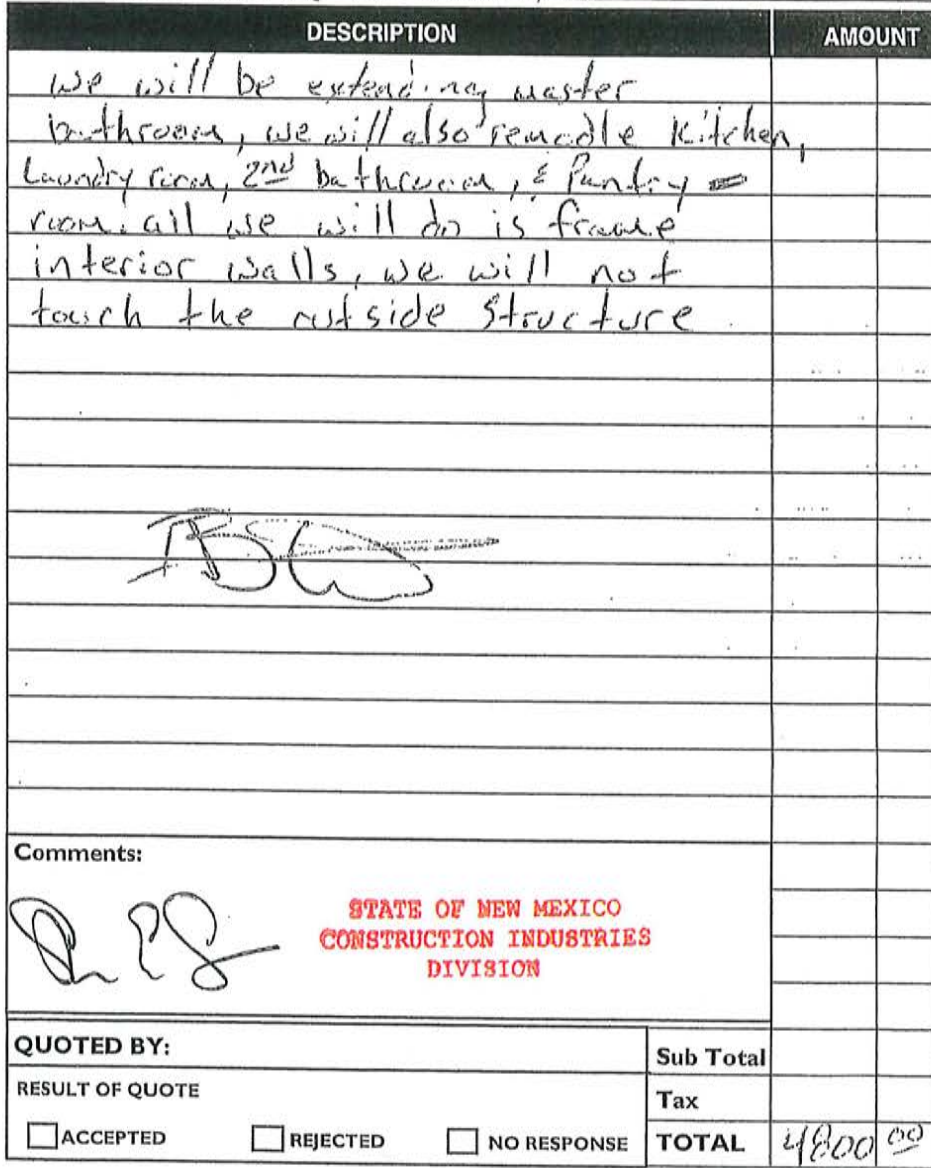 DESCRIPTION AMOUNT
we will be extending master
bathroom, we will also remodle Kitchen,
Laundry room, 2nd bathroom, & Pantry
room. all we will do is frame
interior walls, we will not
touch the outside structure
Comments:
STATE OF NEW MEXICO
CONSTRUCTION INDUSTRIES
DIVISION
QUOTED BY:
Sub Total
RESULT OF QUOTE
Tax
ACCEPTED REJECTED NO RESPONSE TOTAL 4800 00